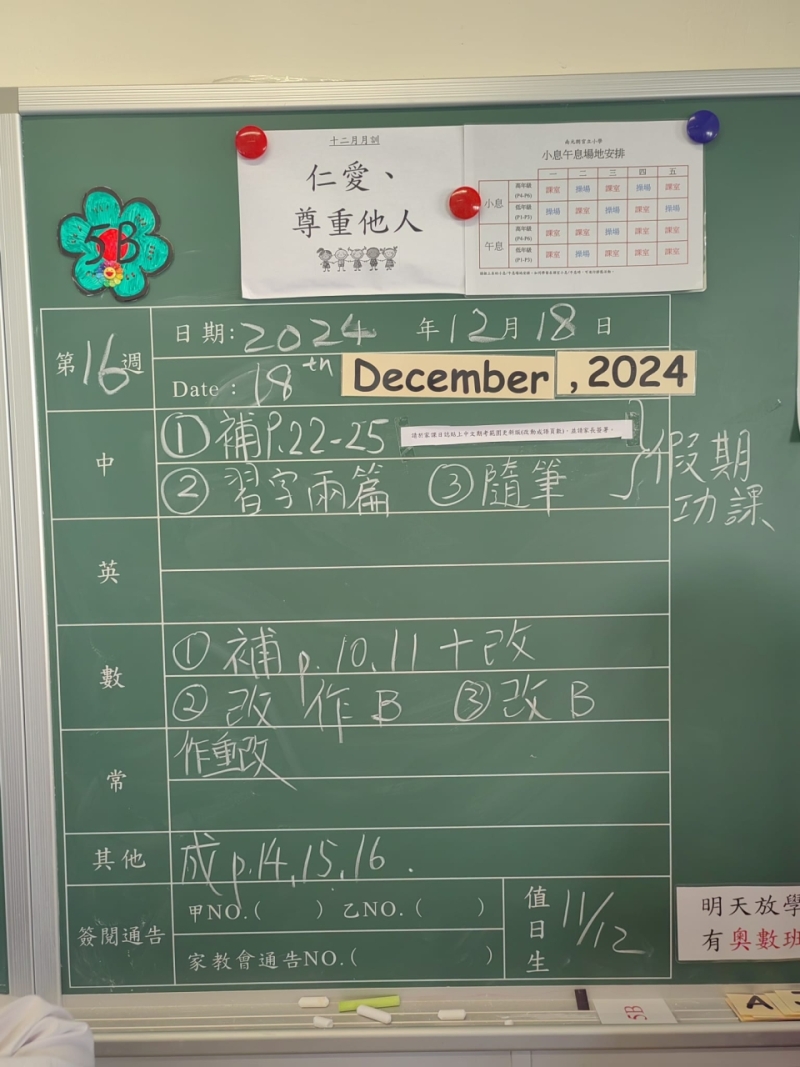 十二月月訓
仁愛、
尊重他人
小息午息場地安排
一 二 三 四 五
小息
高年級 (P4-P6) 課室 操場 課室 操場 課室
低年級 (P1-P3) 操場 課室 操場 課室 操場
午息
高年級 (P4-P6) 課室 課室 課室 課室 課室
低年級 (P1-P3) 課室 操場 操場 課室 課室
5B
第16週
日期:2024年12月18日
Date : 18th December , 2024
中
① 補P.22-25
② 習字兩篇 ③ 隨筆
假期
功課
英
數
① 補 p.10,11 + 改
② 改 作 B ③ 改 B
常
作重改
其他
成 p.14,15,16.
簽閱通告
甲NO.( ) 乙NO.( )
家教會通告NO.( )
值日生
11/12
明天放學
有奧數班
5B
A